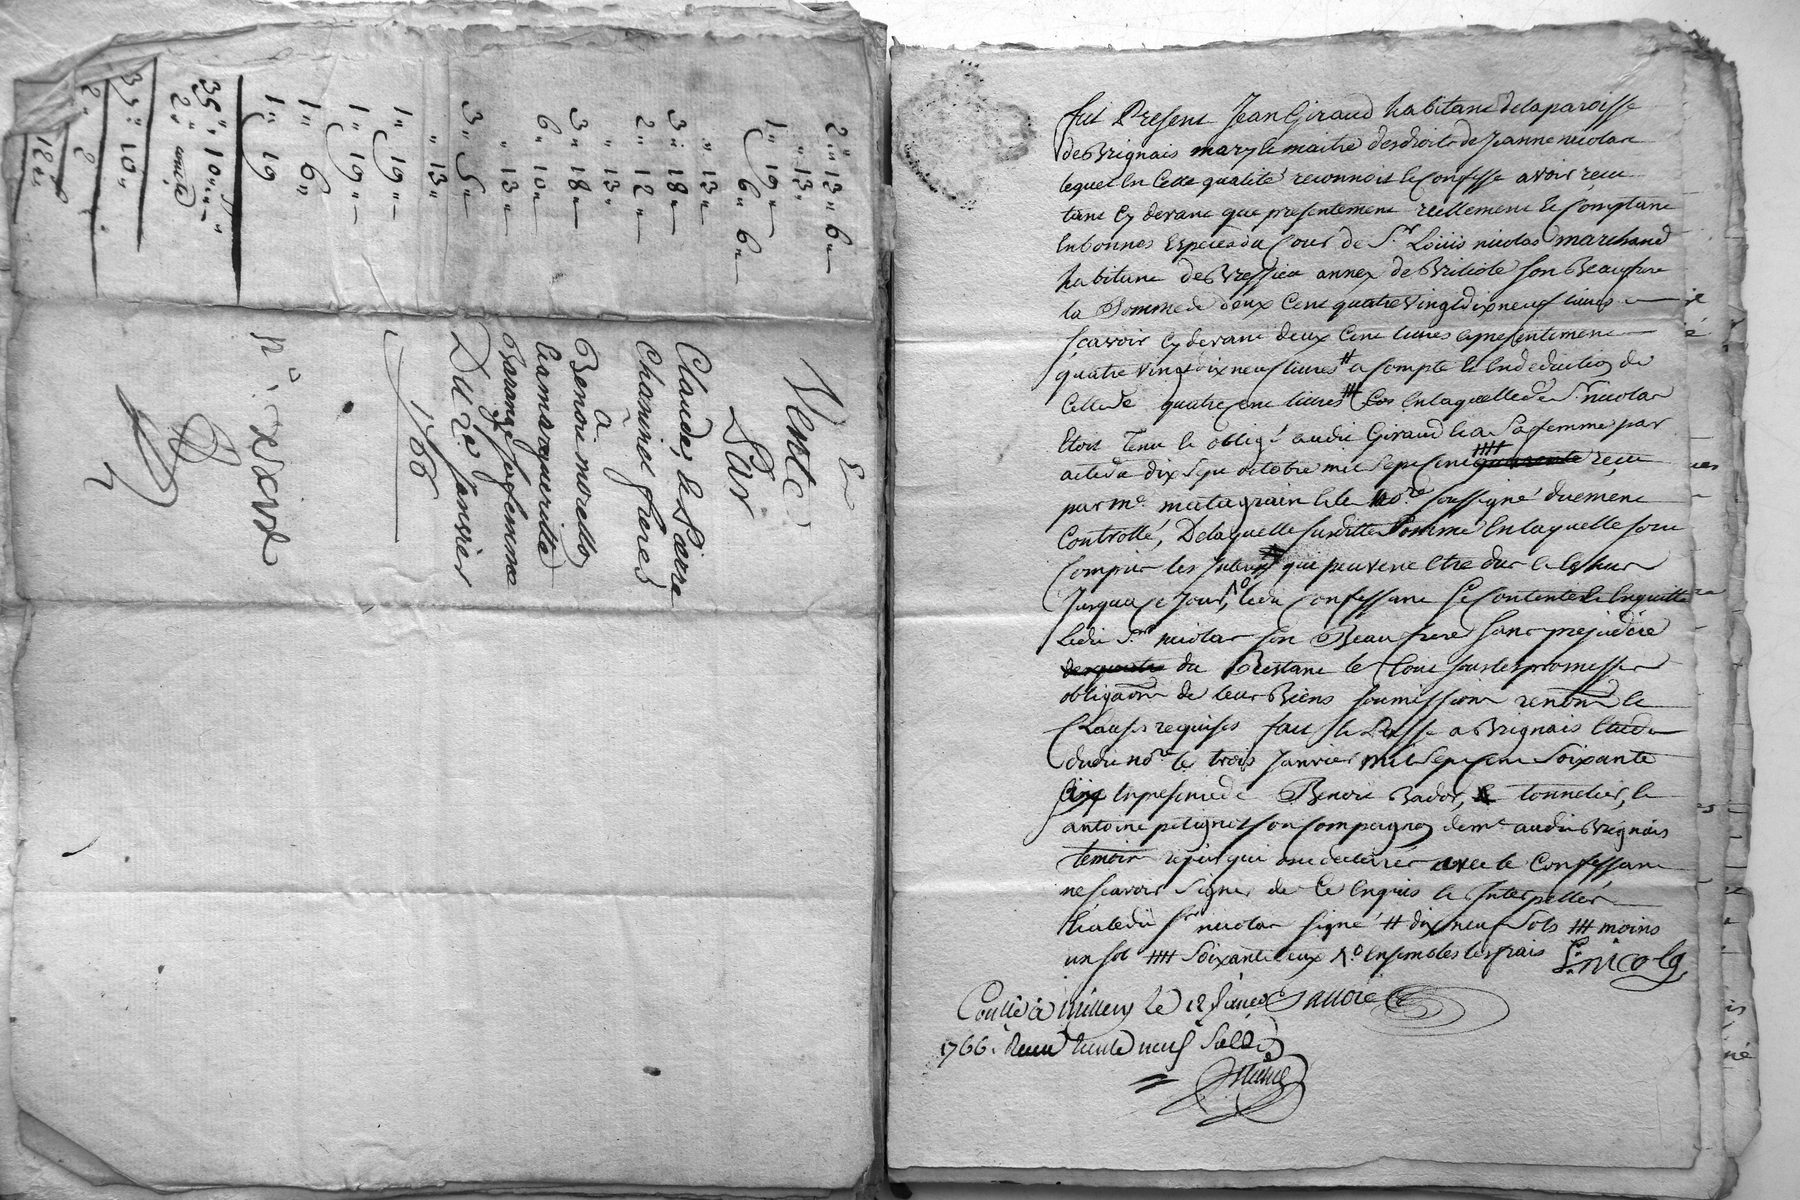 2" 13" 6"
" 13"
1" 19"
6" 6"
" 13"
3" 18"
2" 12"
" 13"
3" 18"
6" 10"
" 13"
3" 5"
" 13"
1" 19"
1" 19"
1" 6"
1" 19
35" 10"
2"
33" 10"
2" 8
Vente
Par
Claude, & Pierre
Chavinel freres
a
Benoit morello
& margueritte
Barange sa femme
Du 29 Janvier
1766
n°. xxxx
fut Present Jean Giraud habitant de la paroisse
de Brignais mary & maitre des droits de Jeanne nicolas
lequel en Cette qualité reconnoit & Confesse avoir reçu
tant Cy devant que presentement reellement & Comptant
En bonnes Especes du Cour de Sr. Loüis nicolas marchand
habitant de Bressieu annex de son Beaufrere
la Somme de deux Cent quatre vingt dix neuf livres
scavoir Cy devant deux Cent livres & presentement
quatre vingt dix neuf livres # a Compte & En deduction de
Celle de quatre Cent livres ### En laquelle led. Sr. nicolas
Etoit Tenu & obligé audit Giraud & a Sa femme par
acte du dix sept octobre mil Sept Cent #### reçu
par me. matagrain & le nore soussigné duement
Controllé, De laquelle susditte Somme En laquelle sont
Compris les Interets que peuvent Etre dus & Echus
Jusqua Ce Jour, led. Confessant Se Contente & En quitte
Ledit Sr. nicolas son Beau frere sans prejudice
du Restant & Tout sous les promesses
obligaons de leurs Biens soumissions renons &
Clauses requises fait & Passé a Brignais Etude
dudit nore le trois Janvier mil Sept Cent Soixante
Cinq En presence de Benoit Bador, tonnelier, &
antoine son Compagnon dem. audit Brignais
temoins requis qui ont declaré avec le Confessant
ne scavoir signer de Ce Enquis & Interpellés
& a ledit Sr. nicolas signé # dix neuf Sols ### moins
un sol #### Soixante deux Ensembles les frais
L. nicolas
Contlé à Millery le 12 Janvier
1766. Reçu trente neuf Sols